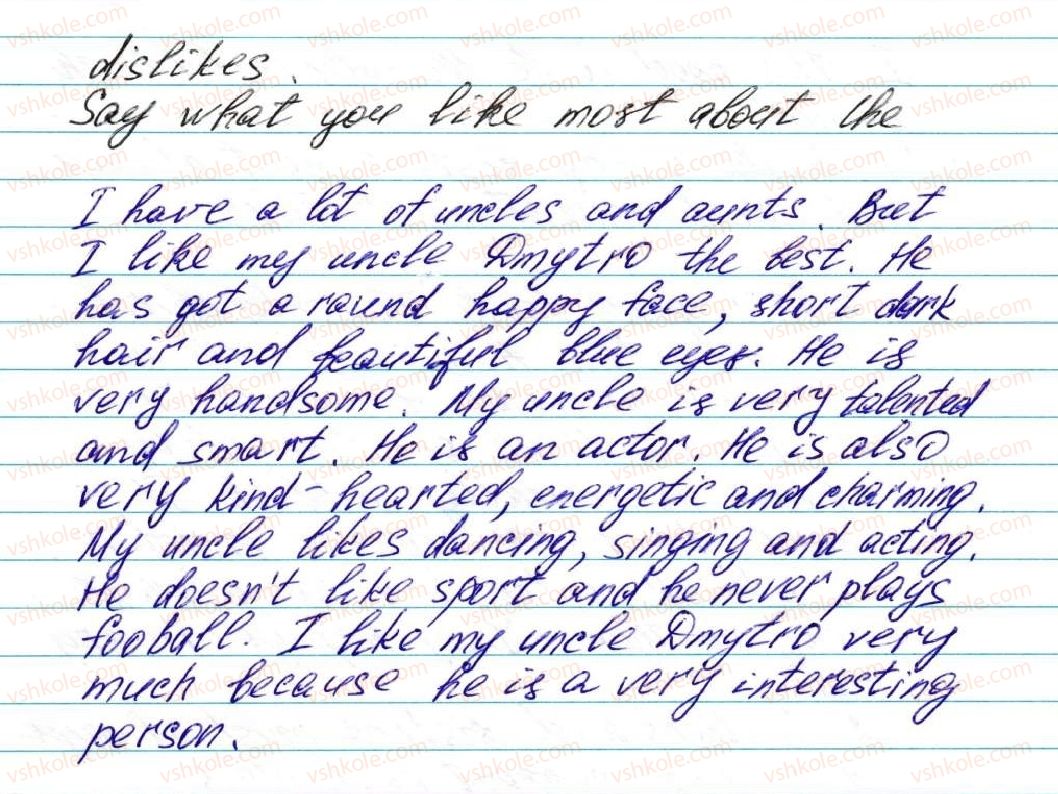 dislikes.
Say what you like most about the
I have a lot of uncles and aunts. But
I like my uncle Dmytro the best. He
has got a round happy face, short dark
hair and beautiful blue eyes. He is
very handsome. My uncle is very talented
and smart. He is an actor. He is also
very kind-hearted, energetic and charming.
My uncle likes dancing, singing and acting.
He doesn't like sport and he never plays
fooball. I like my uncle Dmytro very
much because he is a very interesting
person.